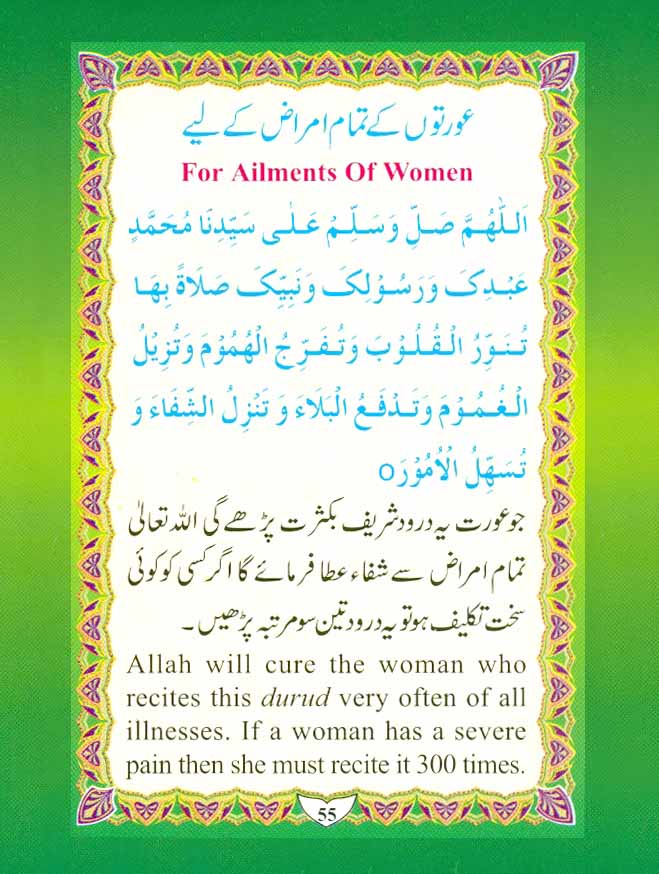 عورتوں کے تمام امراض کے لیے
For Ailments Of Women
اَللّٰهُمَّ صَلِّ وَسَلِّمْ عَلٰى سَيِّدِنَا مُحَمَّدٍ
عَبْدِکَ وَرَسُوْلِکَ وَنَبِيِّکَ صَلَاةً بِهَا
تُنَوِّرُ الْقُلُوْبَ وَتُفَرِّجُ الْهُمُوْمَ وَتُزِيْلُ
الْغُمُوْمَ وَتَدْفَعُ الْبَلَاءَ وَ تَنْزِلُ الشِّفَاءَ وَ
تُسَهِّلُ الْاُمُوْرَ o
جو عورت یہ درود شریف بکثرت پڑھے گی اللہ تعالیٰ
تمام امراض سے شفاء عطا فرمائے گا اگر کسی کو کوئی
سخت تکلیف ہو تو یہ درود تین سو مرتبہ پڑھیں۔
Allah will cure the woman who
recites this durud very often of all
illnesses. If a woman has a severe
pain then she must recite it 300 times.
55